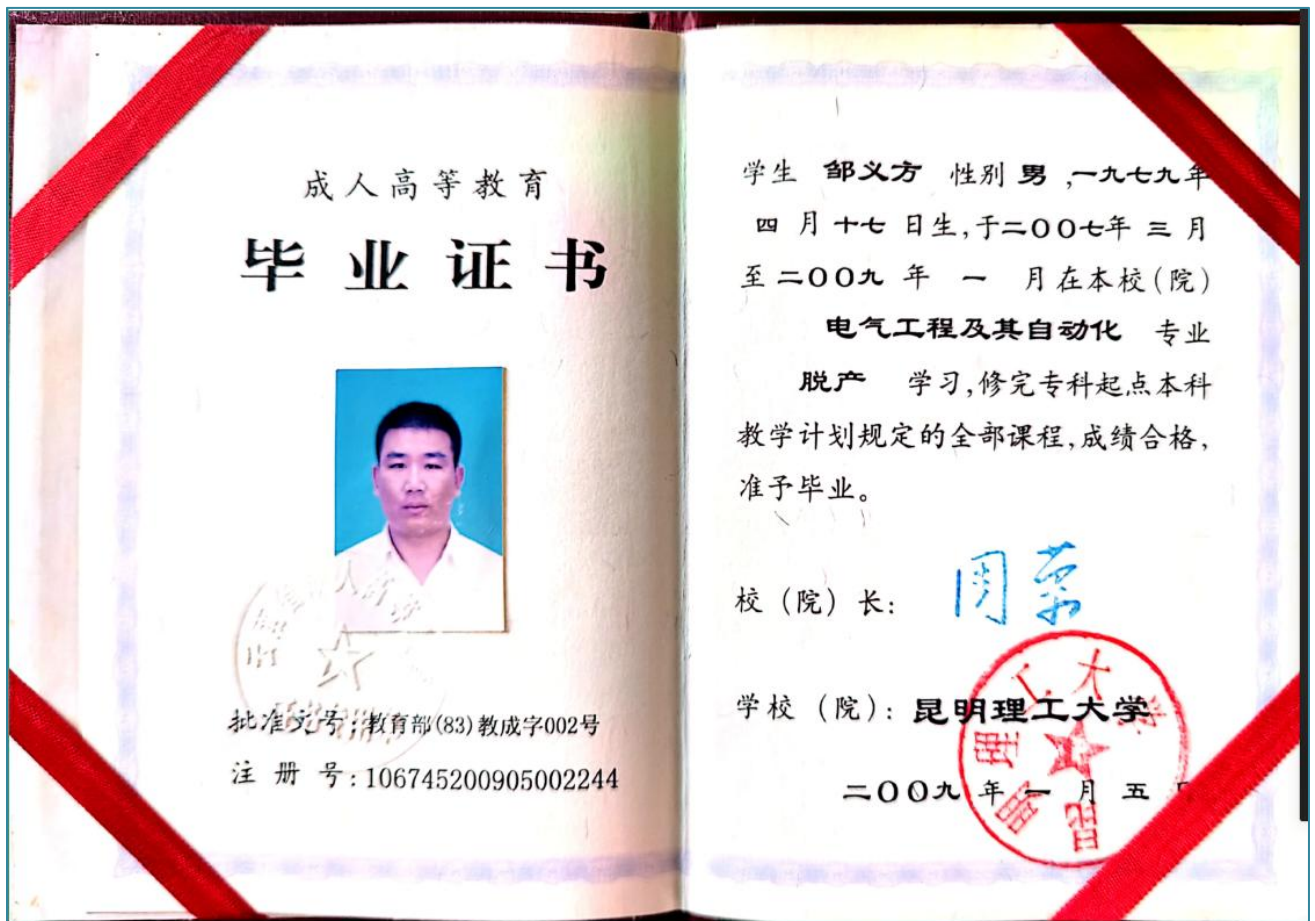 成人高等教育
毕业证书
批准文号:教育部(83)教成字002号
注册号:106745200905002244
学生 邹义方 性别 男,一九七九年
四月十七日生,于二〇〇七年三月
至二〇〇九年一月在本校(院)
电气工程及其自动化 专业
脱产 学习,修完专科起点本科
教学计划规定的全部课程,成绩合格,
准予毕业。
校(院)长: 周荣
学校(院):昆明理工大学
二〇〇九年一月五
昆明理工大学